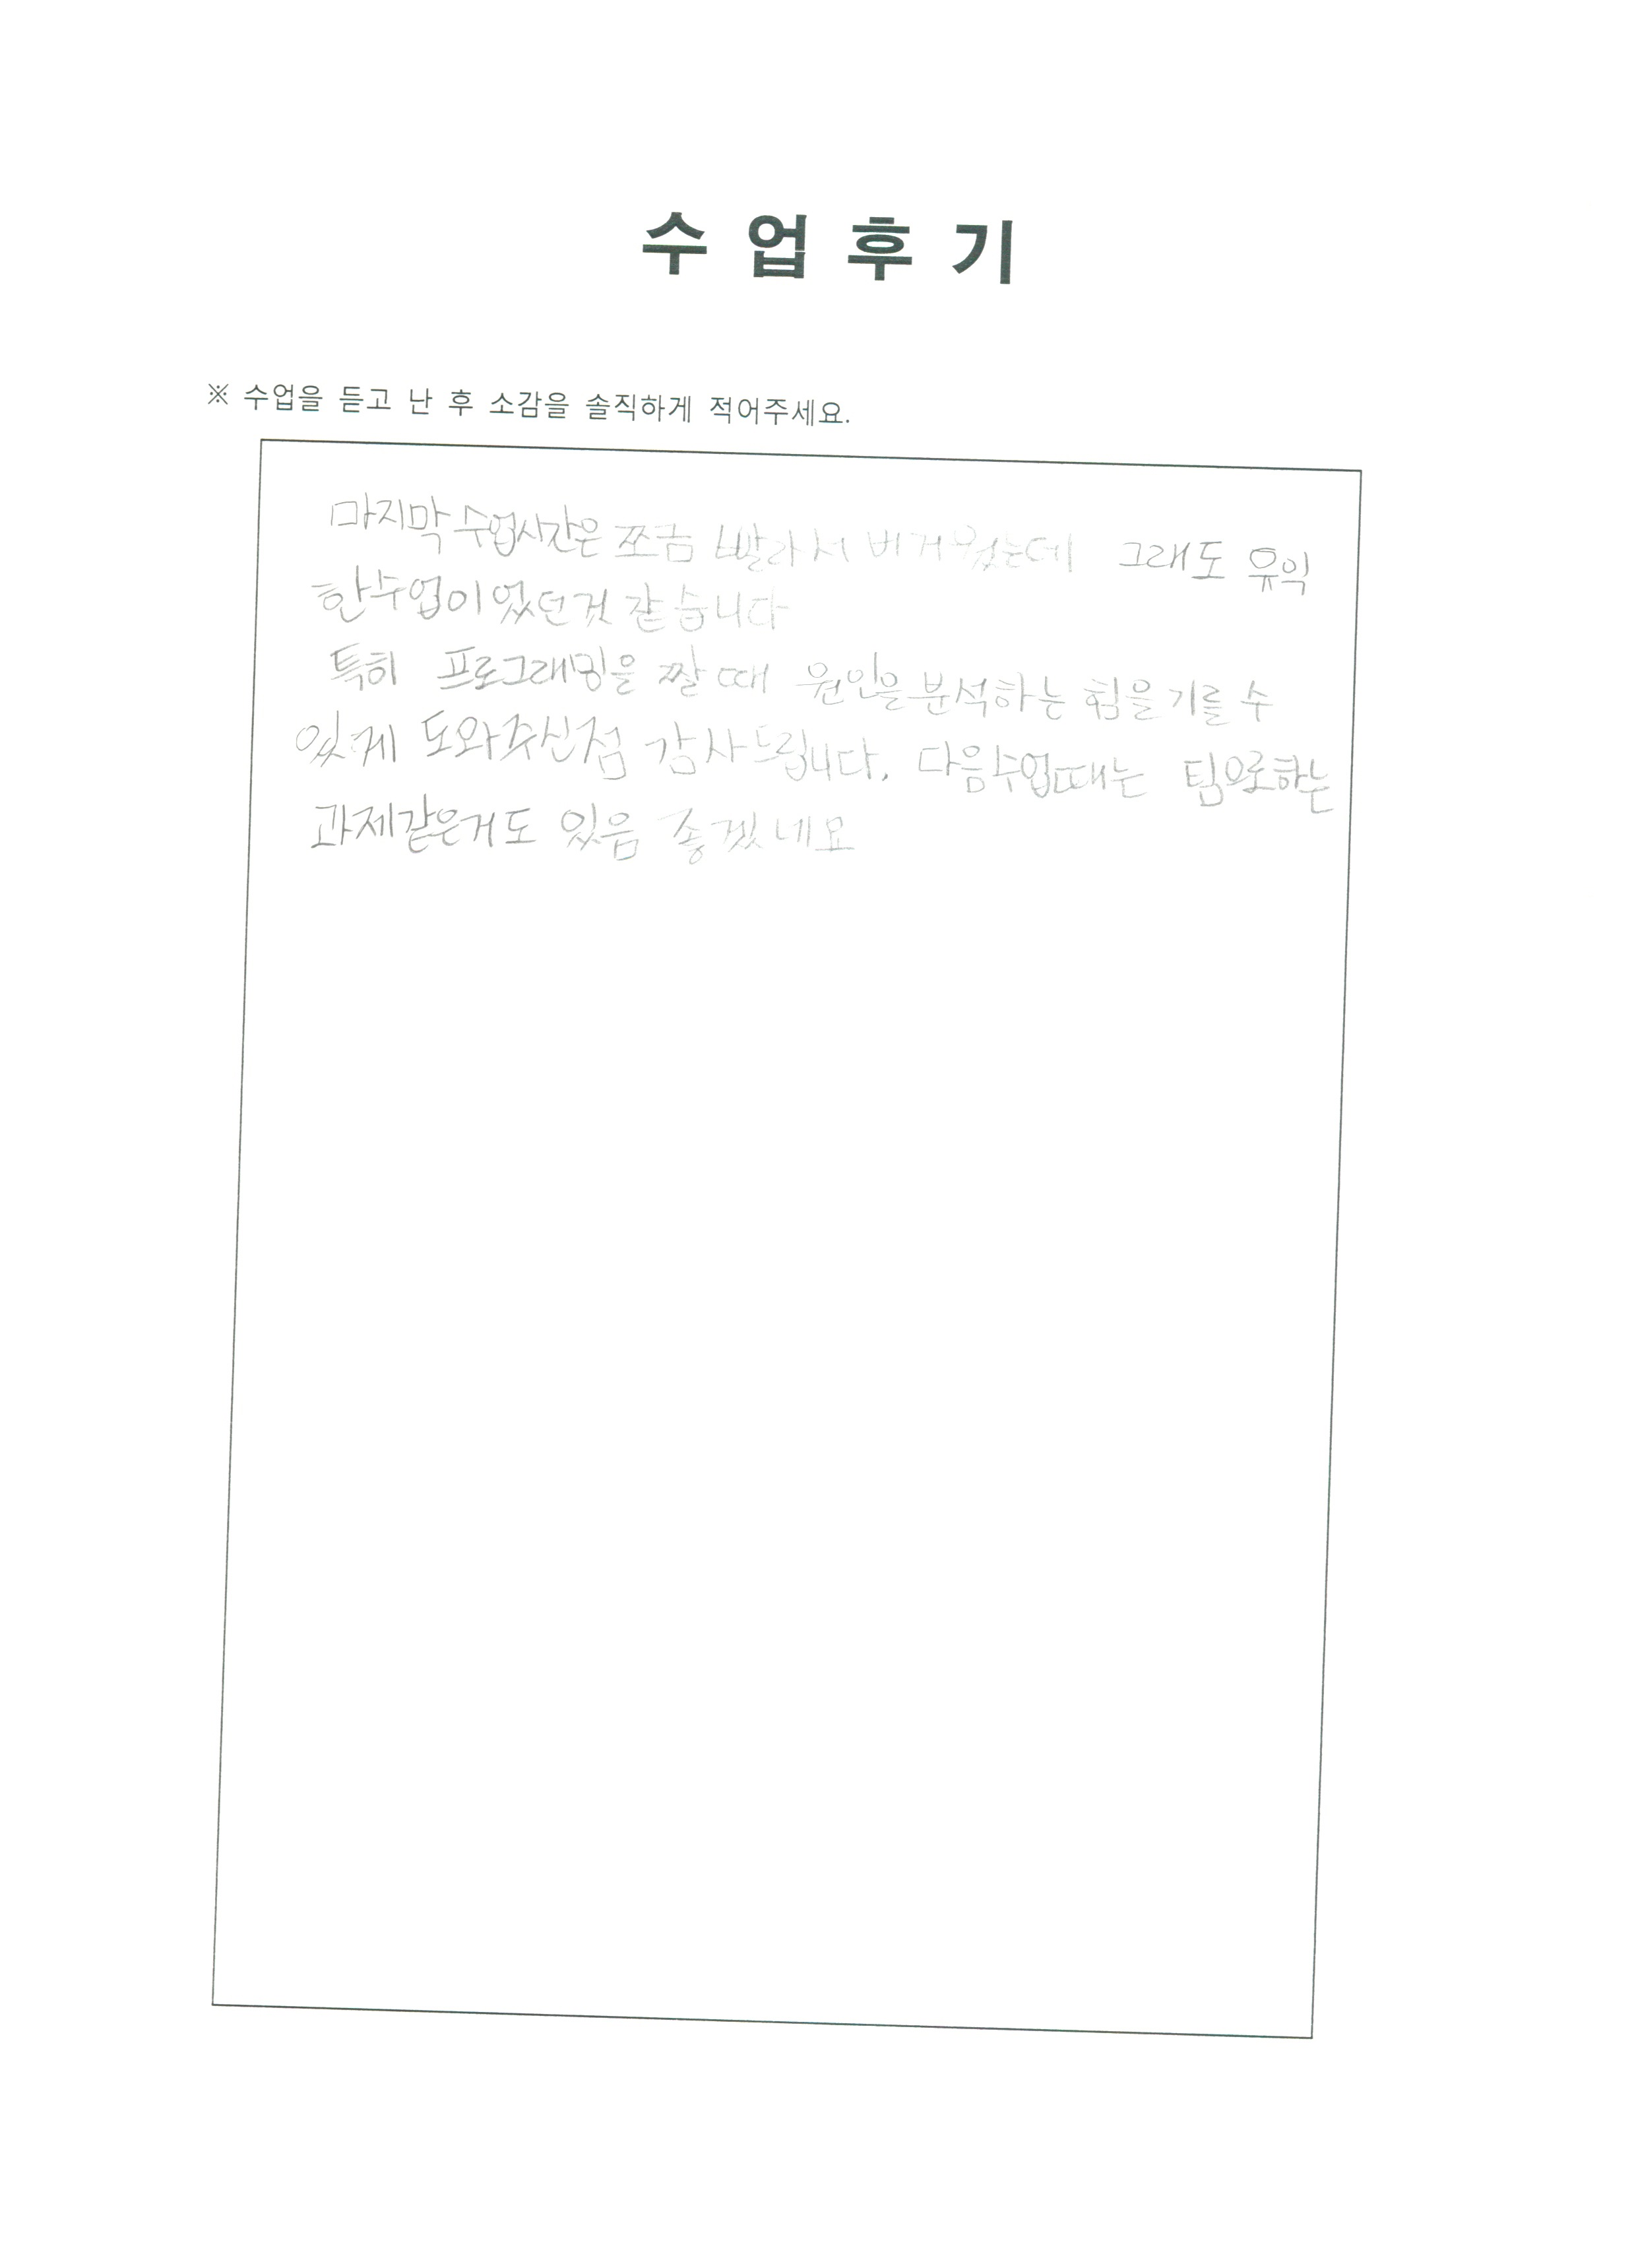 수 업 후 기
※ 수업을 듣고 난 후 소감을 솔직하게 적어주세요.
마지막 수업시간은 쪼금 빨라서 버거웠는데 그래도 유익
한수업이었던것 같습니다
특히 프로그래밍을 짤 때 원인을 분석하는 힘을 기를 수
있게 도와주신점 감사드립니다. 다음수업때는 팀으로하는
과제같은거도 있음 좋겠네요